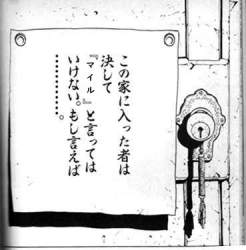 この家に入った者は
決して
『マイル』と言っては
いけない。もし言えば
…………。